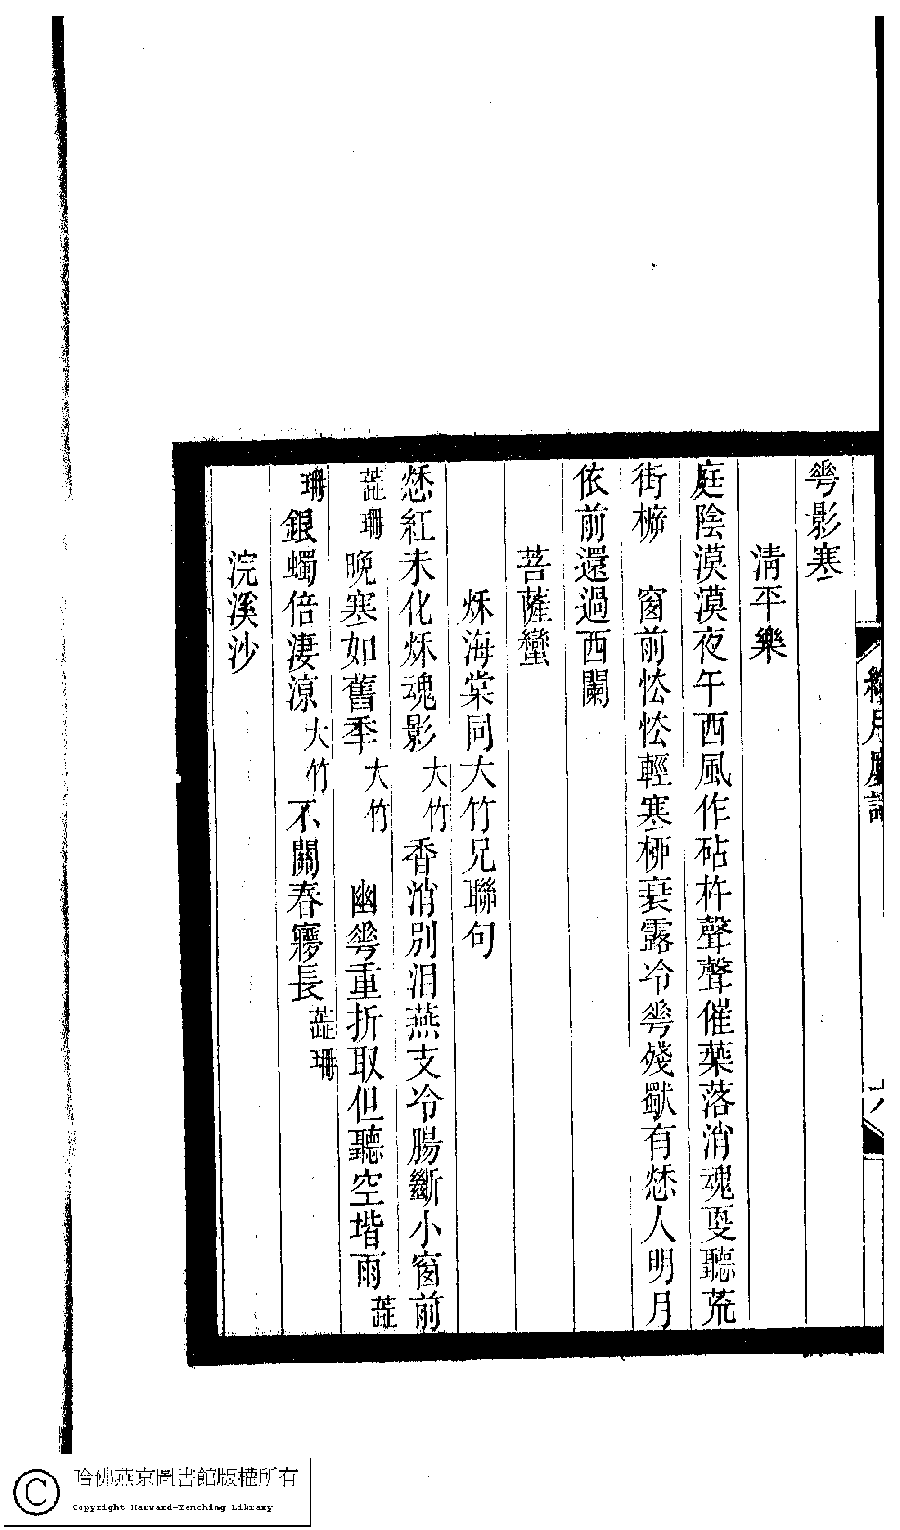 𠌶影寒
清平樂
庭陰漠漠夜午西風作砧杵聲聲催葉落消魂更聽荒
街柝　窗前怯怯輕寒柳衰露冷𠌶殘猷有愁人明月
依前還過西闌
菩薩蠻
秌海棠同大竹兄聯句
愁紅未化秌魂影大竹香消別泪燕支冷腸斷小窗前
蕋珊晚寒如舊季大竹　幽𠌶重折取但聽空堦雨蕋
珊銀蠋倍淒涼大竹不關春㝱長蕋珊
浣溪沙
哈佛燕京圖書館版權所有
Copyright Harvard-Yenching Library